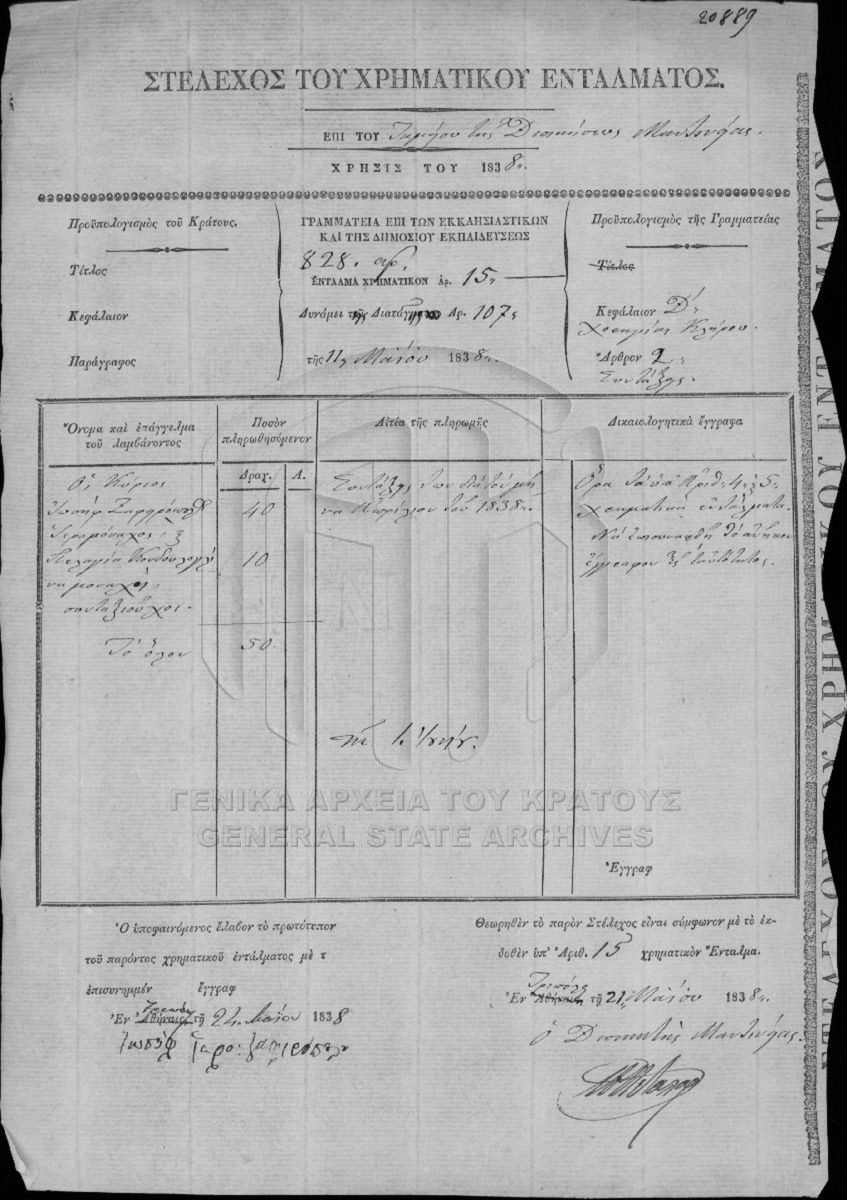 20889
ΣΤΕΛΕΧΟΣ ΤΟΥ ΧΡΗΜΑΤΙΚΟΥ ΕΝΤΑΛΜΑΤΟΣ.
ΕΠΙ ΤΟΥ Ταμείου της Διοικήσεως Μαντινείας.
ΧΡΗΣΙΣ ΤΟΥ 1838
Προϋπολογισμὸς τοῦ Κράτους.
Τίτλος
Κεφάλαιον
Παράγραφος
ΓΡΑΜΜΑΤΕΙΑ ΕΠΙ ΤΩΝ ΕΚΚΛΗΣΙΑΣΤΙΚΩΝ
ΚΑΙ ΤΗΣ ΔΗΜΟΣΙΟΥ ΕΚΠΑΙΔΕΥΣΕΩΣ
828. αρ.
ΕΝΤΑΛΜΑ ΧΡΗΜΑΤΙΚΟΝ ἀρ. 15
Δυνάμει Διατάγματος Ἀρ. 107
τῆς 11 Μαΐου 1838
Προϋπολογισμὸς τῆς Γραμματείας
Τίτλος
Κεφάλαιον Δ'
Χρηματικός Κλήρου.
Ἄρθρον 2
Συντάξεις
Ὄνομα καὶ ἐπάγγελμα
τοῦ λαμβάνοντος
Ποσὸν
πληρωθησόμενον
Δραχ. Λ.
Αἰτία τῆς πληρωμῆς
Δικαιολογητικὰ ἔγγραφα
Οἱ Κύριοι
Ἰωσὴφ 40
Ἱερομόναχος
Πελαγία 10
μοναχὴ
συνταξιοῦχοι.
Τὸ ὅλον 50
Συντάξεις τῶν κατὰ τὸν μῆ
να Ἀπρίλιον τοῦ 1838
Ὅρα τὰ ὑπ' Ἀριθ. 4 5
χρηματικὰ ἐντάλματα.
Νὰ ἐπισυναφθῇ τὸ ἀνῆκον
ἔγγραφον τῆς ταὐτότητος.
ΓΕΝΙΚΑ ΑΡΧΕΙΑ ΤΟΥ ΚΡΑΤΟΥΣ
GENERAL STATE ARCHIVES
Ἔγγραφ
Ὁ ὑποφαινόμενος ἔλαβον τὸ πρωτότυπον
τοῦ παρόντος χρηματικοῦ ἐντάλματος μὲ τ
ἐπισυνημμέν ἔγγραφ
Ἐν Ἀθήναις τῇ 24 Μαΐου 1838
Ἰωσὴφ
Θεωρηθὲν τὸ παρὸν Στέλεχος εἶναι σύμφωνον μὲ τὸ ἐκ-
δοθὲν ὑπ' Ἀριθ. 15 χρηματικὸν Ἔνταλμα.
Τριπόλει
Ἐν Ἀθήναις τῇ 21 Μαΐου 1838
Ὁ Διοικητὴς Μαντινείας.